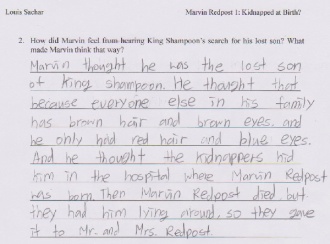 Louis Sachar Marvin Redpost 1: Kidnapped at Birth?
2. How did Marvin feel from hearing King Shampoon's search for his lost son? What
made Marvin think that way?
Marvin thought he was the lost son
of king shampoon. He thought that
because everyone else in his family
has brown hair and brown eyes. and
he only had red hair and blue eyes.
And he thought the kidnappers hid
him in the hospital where Marvin Redpost
was born. Then Marvin Redpost died. but
they had him lying around, so they gave
it to Mr. and Mrs. Redpost.